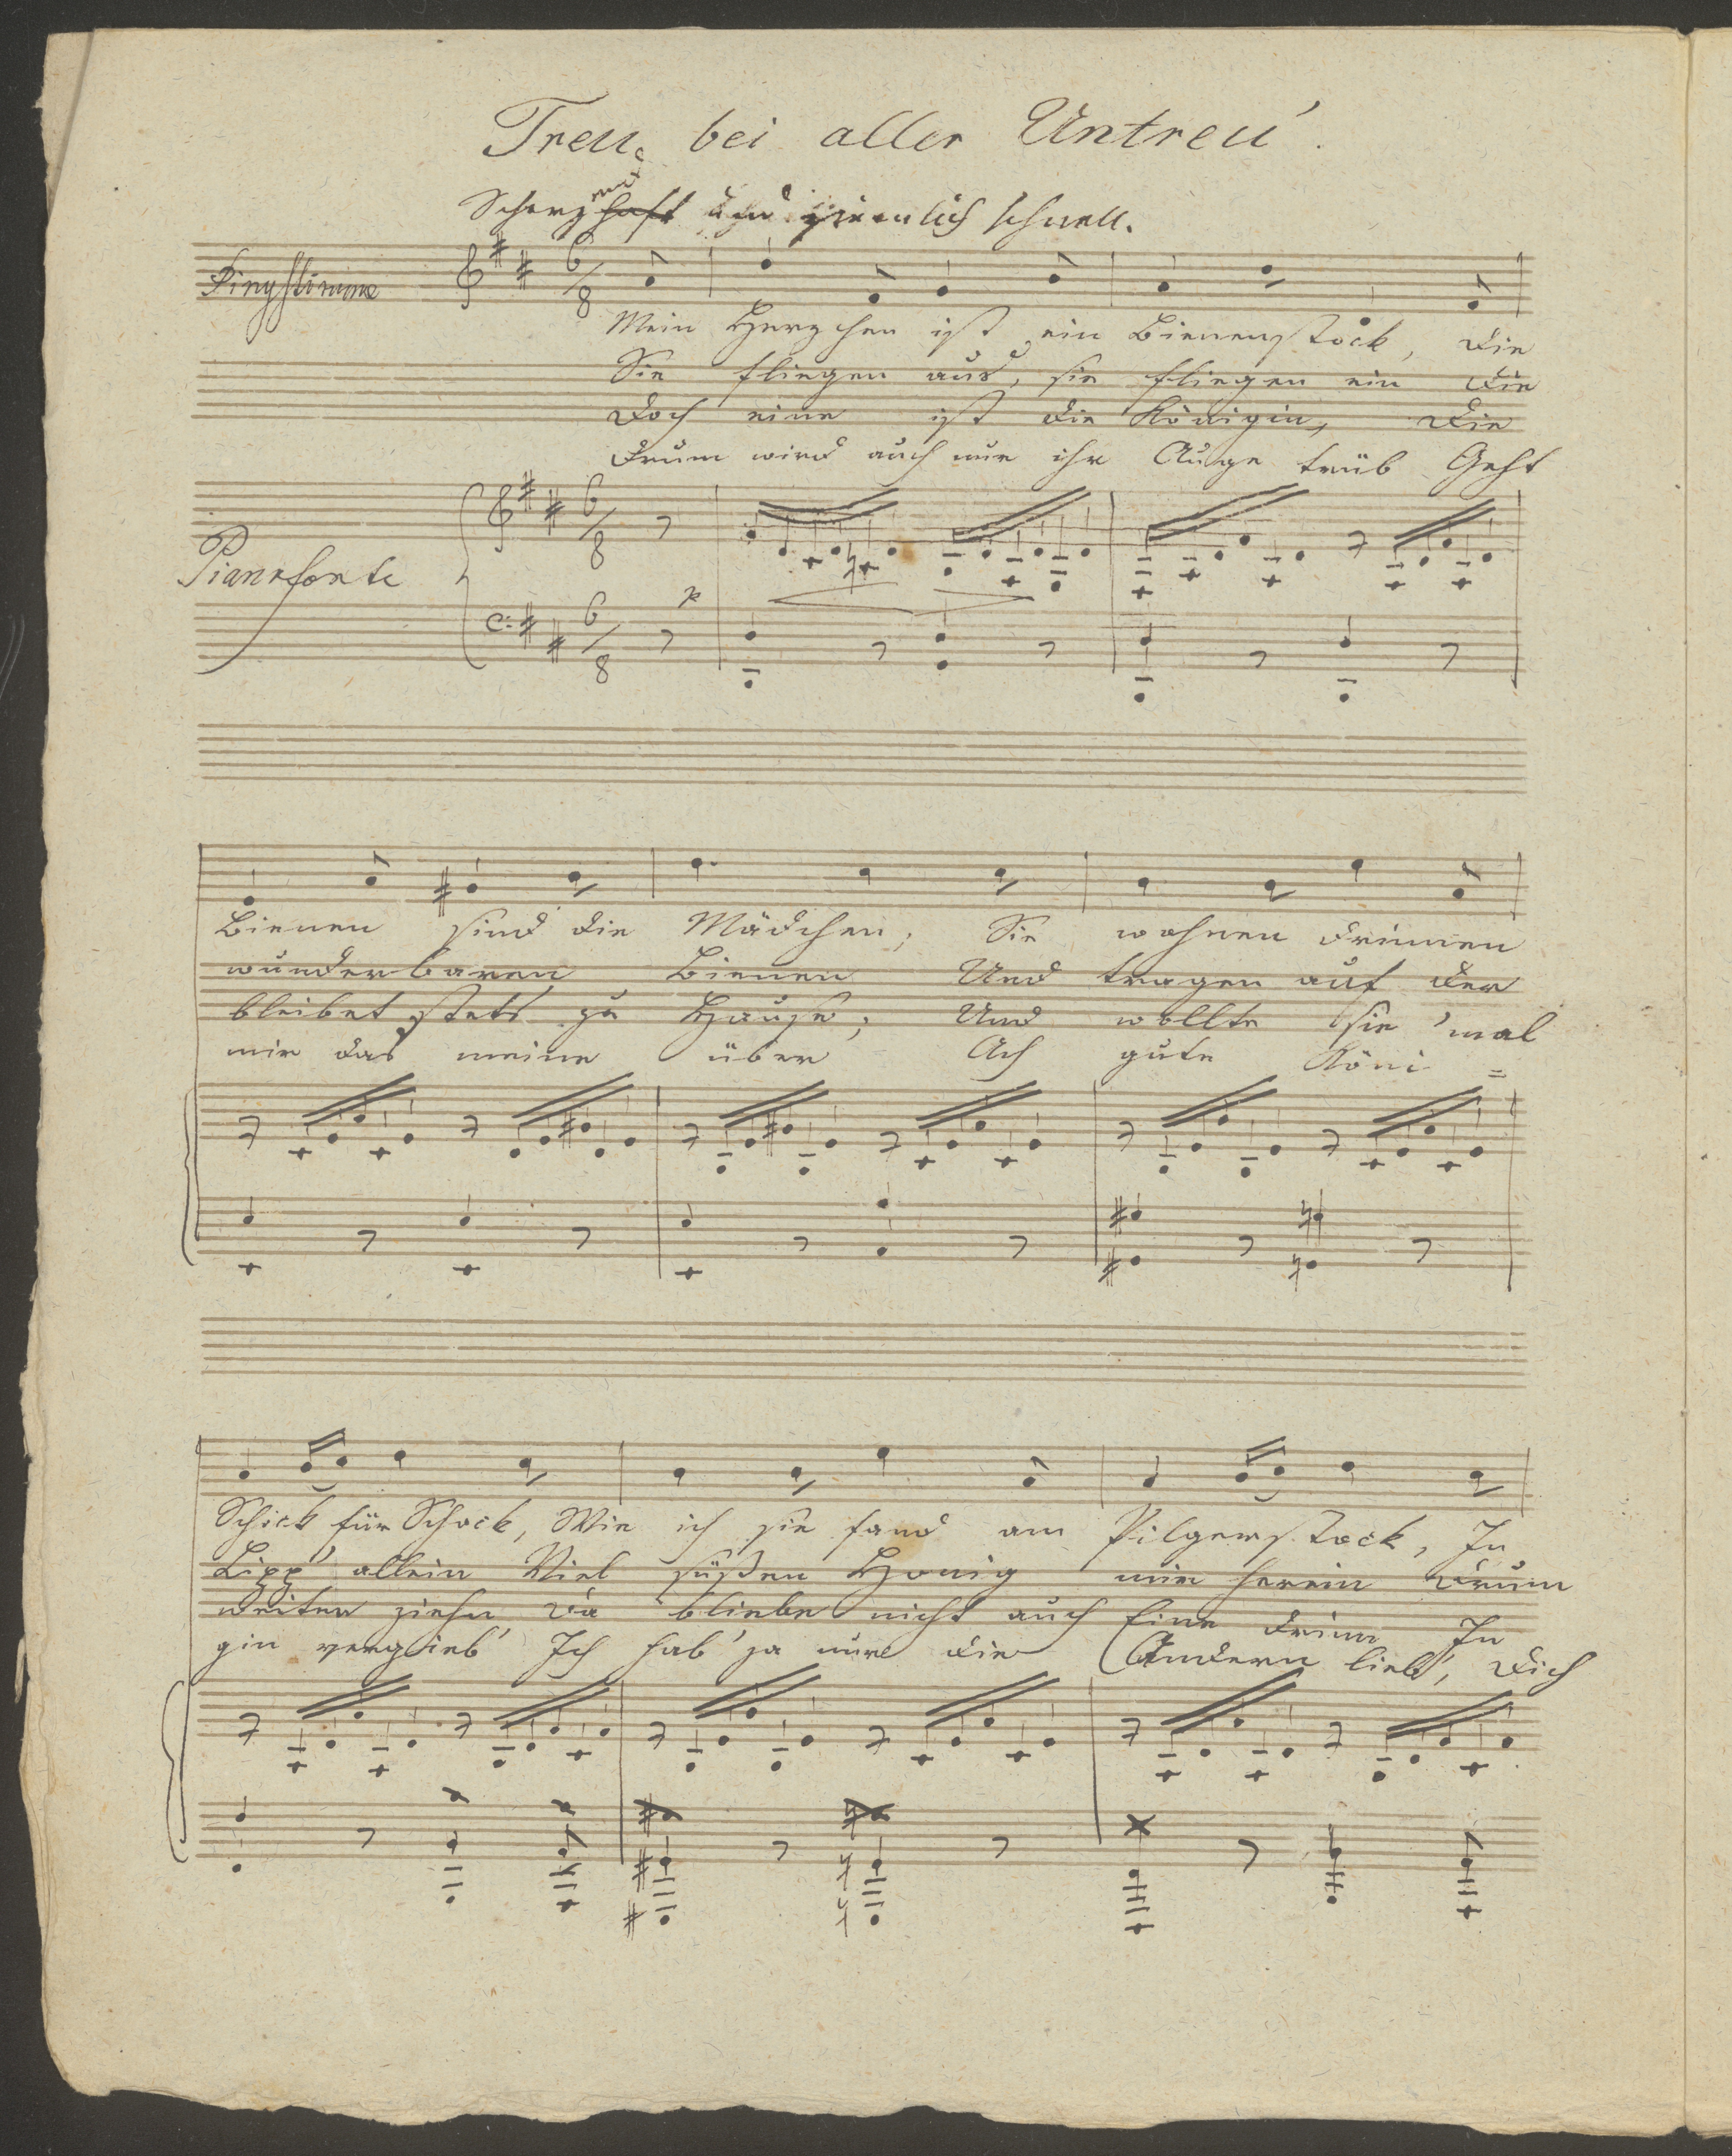 Treue bei aller Untreu'.
Scherzhaft und ziemlich schnell.
Singstimme
Mein Herzchen ist ein Bienenstock, die
Sie fliegen aus, sie fliegen ein die
Doch eine ist die Königin, die
Drum wird auch nur ihr Auge trüb Geht
Pianoforte
p
Bienen sind die Mädchen; Sie wohnen drinnen
wunderbaren Bienen Und tragen auf der
bleibet stets zu Hause; Und wollte sie 'mal
mir das meine über Ach gute Köni=
Schick für Schock, Wie ich sie fand am Pilgerstock, In
Lipp' allein Viel süßen Honig mir herein Drum
weiter ziehn Da bliebe nicht auch Eine drinn In
gin vergieb' Ich hab' ja nur die Andern lieb', Dich